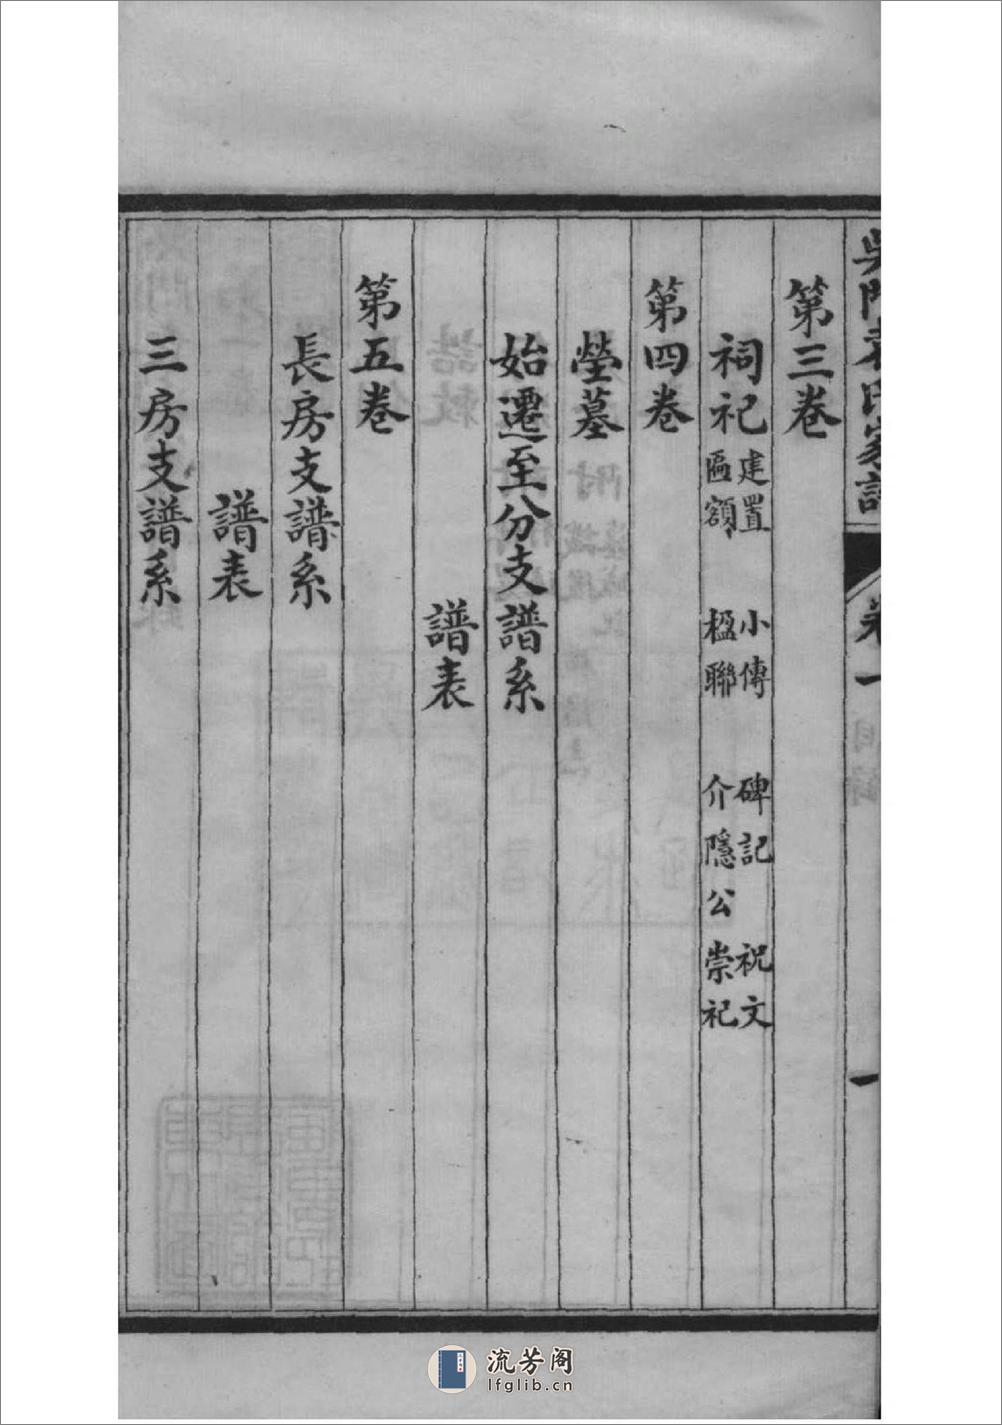 吳門袁氏家譜 卷一 目錄 一
第三卷
祠祀 建置 小傳 碑記 祝文
匾額 楹聯 介隱公崇祀
第四卷
塋墓
始遷至分支譜系
譜表
第五卷
長房支譜系
譜表
三房支譜系
流芳阁
lfglib.cn